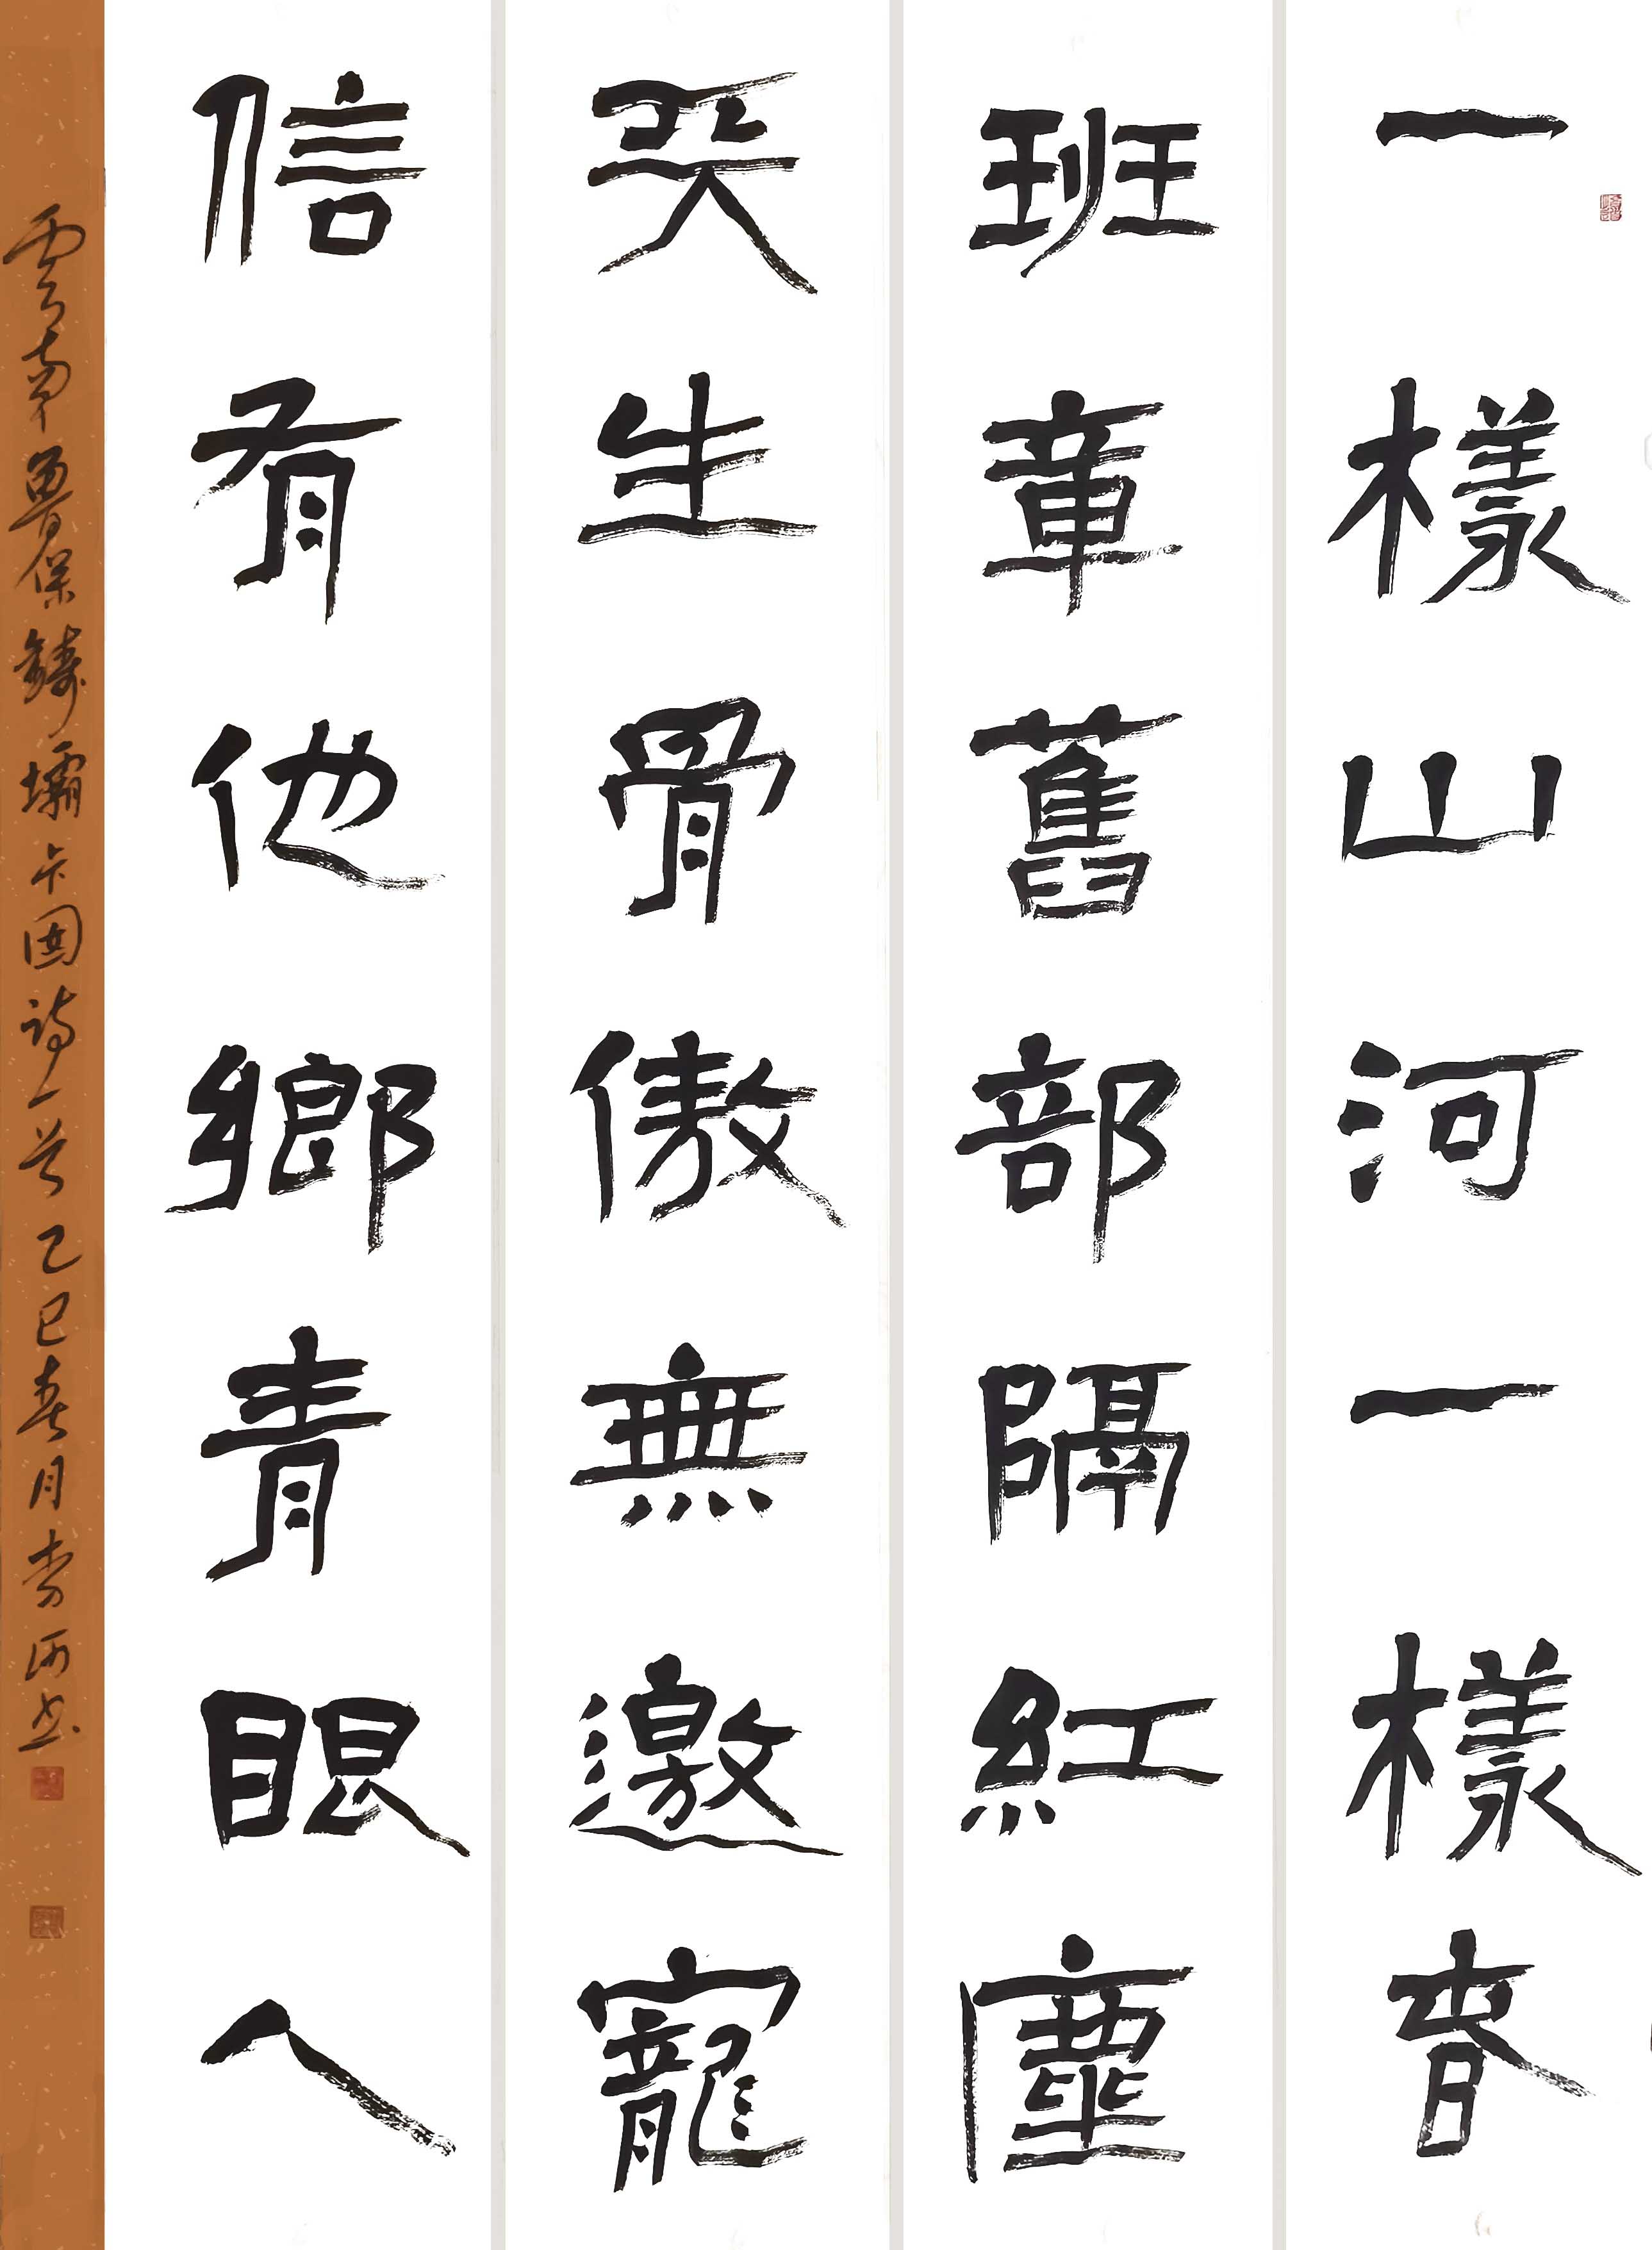 一樣山河一樣春
班章舊部隔紅塵
天生骨傲無邀寵
信有他鄉青眼人
雲南魯保鑄壩卡囡詩一首乙巳春月李河书